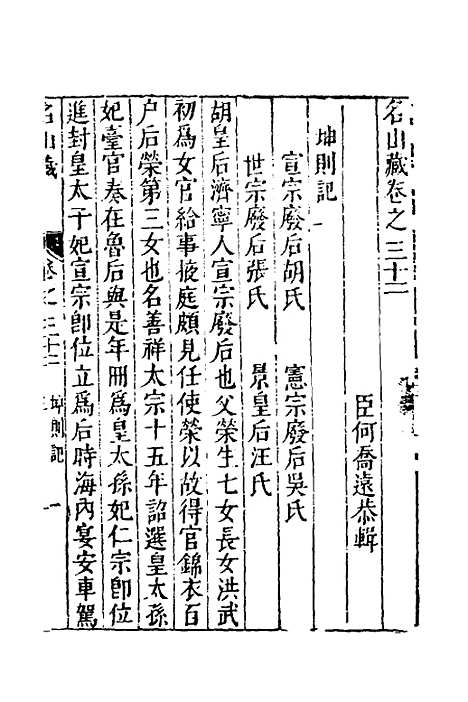 名山藏卷之三十二
臣何喬遠恭輯
坤則記
宣宗廢后胡氏　憲宗廢后吳氏
世宗廢后張氏　景皇后汪氏
胡皇后濟寧人宣宗廢后也父榮生七女長女洪武
初爲女官給事掖庭頗見任使榮以故得官錦衣百
户后榮第三女也名善祥太宗十五年詔選皇太孫
妃臺官奏在魯后與是年册爲皇太孫妃仁宗卽位
進封皇太子妃宣宗卽位立爲后時海內宴安車駕
名山藏　卷之三十二　坤則記　一